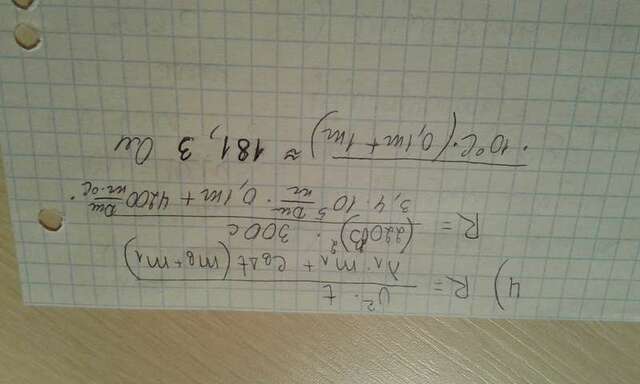 4) R = U² · t
λл · mл + CвΔt (mв + mл)
R = (220В)² · 300 с
3,4 · 10⁵ Дж/кг · 0,1кг + 4200 Дж/кг·°C ·
· 10°C · (0,1кг + 1кг) ≈ 181,3 Ом